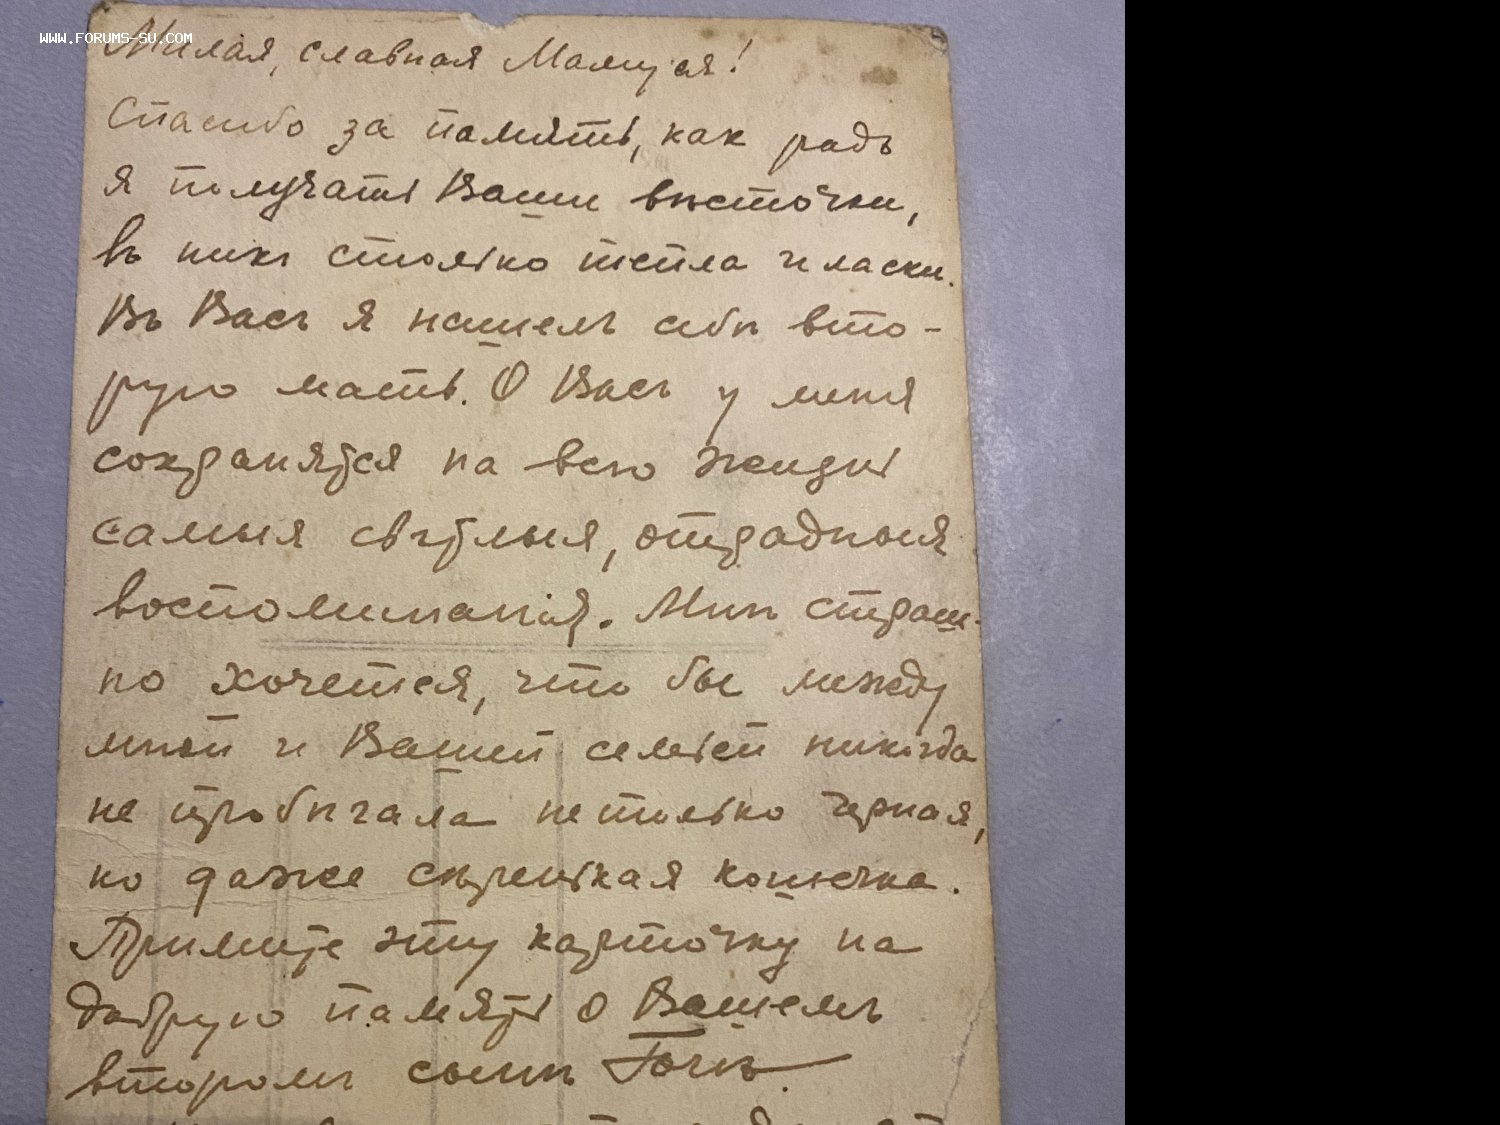 www.forums-su.com
Милая, славная Мамуся!
Спасибо за память, какъ радъ
я получать Ваши вѣсточки,
въ нихъ столько тепла и ласки.
Въ Васъ я нашелъ себѣ вто-
рую мать. О Васъ у меня
сохранятся на всю жизнь
самыя свѣтлыя, отрадныя
воспоминанія. Мнѣ страш-
но хочется, что бы между
мной и Вашей семьей никогда
не пробѣгала не только черная,
но даже сѣренькая кошечка.
Примите эту карточку на
добрую память о Вашемъ
второмъ сынѣ